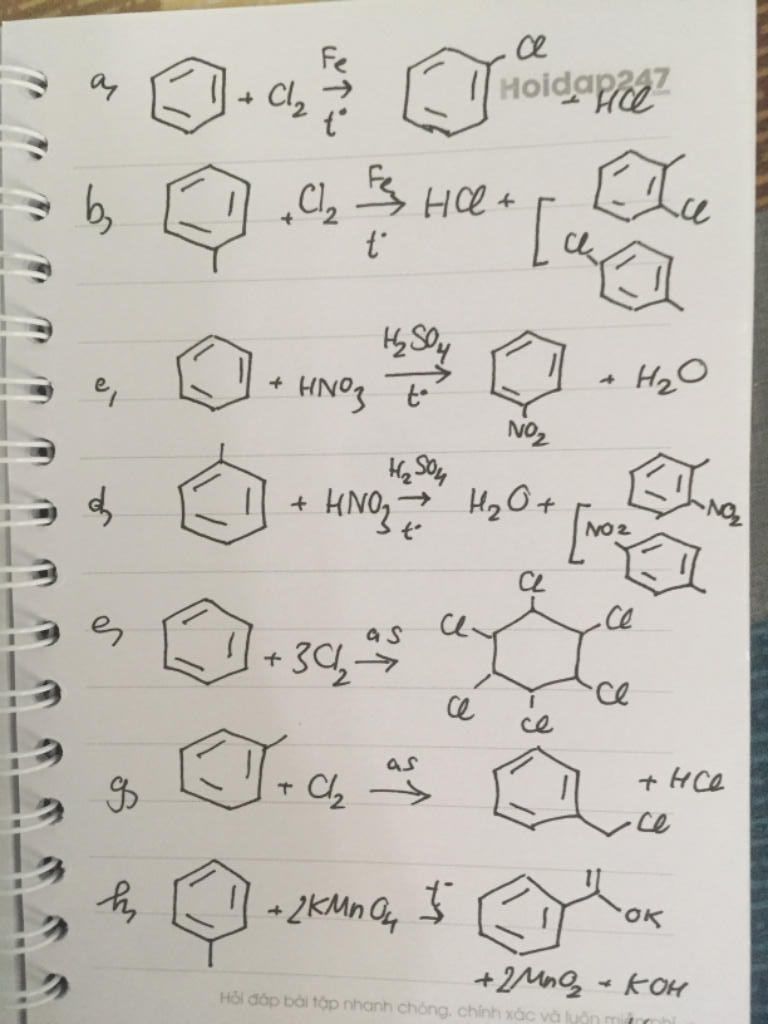 a, + Cl2 Fe t° → Cl + HCl
Hoidap247
b, + Cl2 Fe t° → HCl + [ Cl
Cl
e, + HNO3 H2SO4 t° → NO2 + H2O
d, + HNO3 H2SO4 t° → H2O + [ NO2
NO2
e, + 3Cl2 as → Cl Cl Cl Cl Cl Cl
g, + Cl2 as → Cl + HCl
h, + 2KMnO4 t° → OK
+ 2MnO2 + KOH
Hỏi đáp bài tập nhanh chóng, chính xác và luôn miễn phí